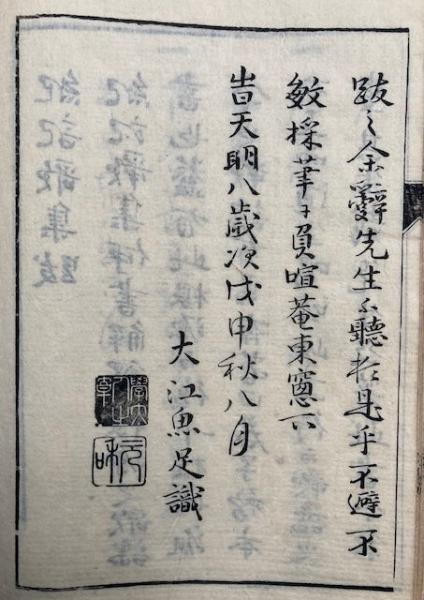 跋之余辭先生不聽於是乎不避不
敏採筆于負喧菴東窓下
旹天明八歳次戊申秋八月
大江魚足識